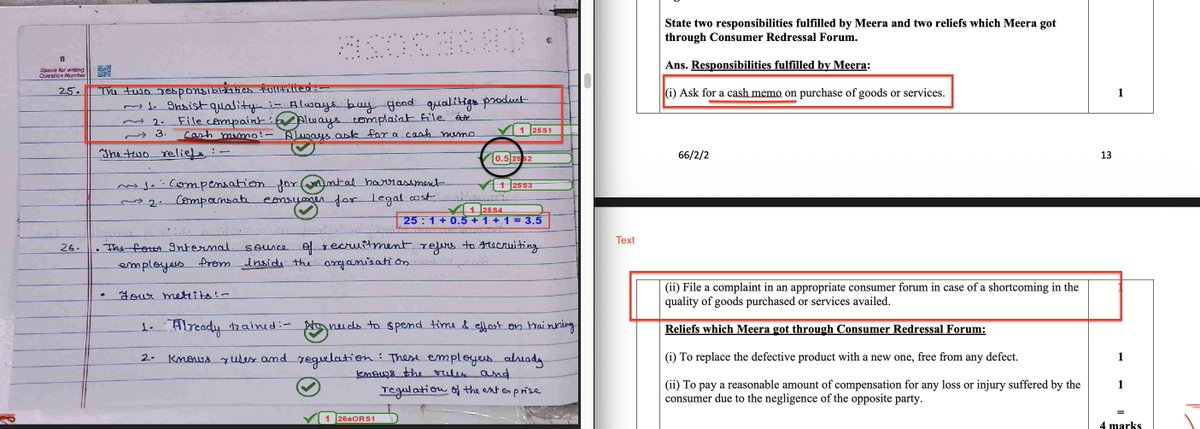 8
Space for writing
Question Number
25. The two responsibilities fulfilled:-
1. Insist quality :- Always buy good qualitigs product
2. File compaint :- Always complaint file
3. Cash mumo:- Always ask for a cash memo
1 25S1
The two reliefs :-
0.5 25S2
1. Compensation for mental harrassment
1 25S3
2. Compansate consumer for legal cost
1 25S4
25 : 1 + 0.5 + 1 + 1 = 3.5
26. The four Internal source of recruitment refers to recruiting
employees from inside the organisation
Four merits:-
1. Already trained:- No needs to spend time & effort on training
2- Knows rules and regulation : These employees already
knows the rules and
regulation of the enterprise
1 26aORS1
State two responsibilities fulfilled by Meera and two reliefs which Meera got
through Consumer Redressal Forum.
Ans. Responsibilities fulfilled by Meera:
(i) Ask for a cash memo on purchase of goods or services. 1
66/2/2 13
Text
(ii) File a complaint in an appropriate consumer forum in case of a shortcoming in the 1
quality of goods purchased or services availed.
Reliefs which Meera got through Consumer Redressal Forum:
(i) To replace the defective product with a new one, free from any defect. 1
(ii) To pay a reasonable amount of compensation for any loss or injury suffered by the 1
consumer due to the negligence of the opposite party.
=
4 marks